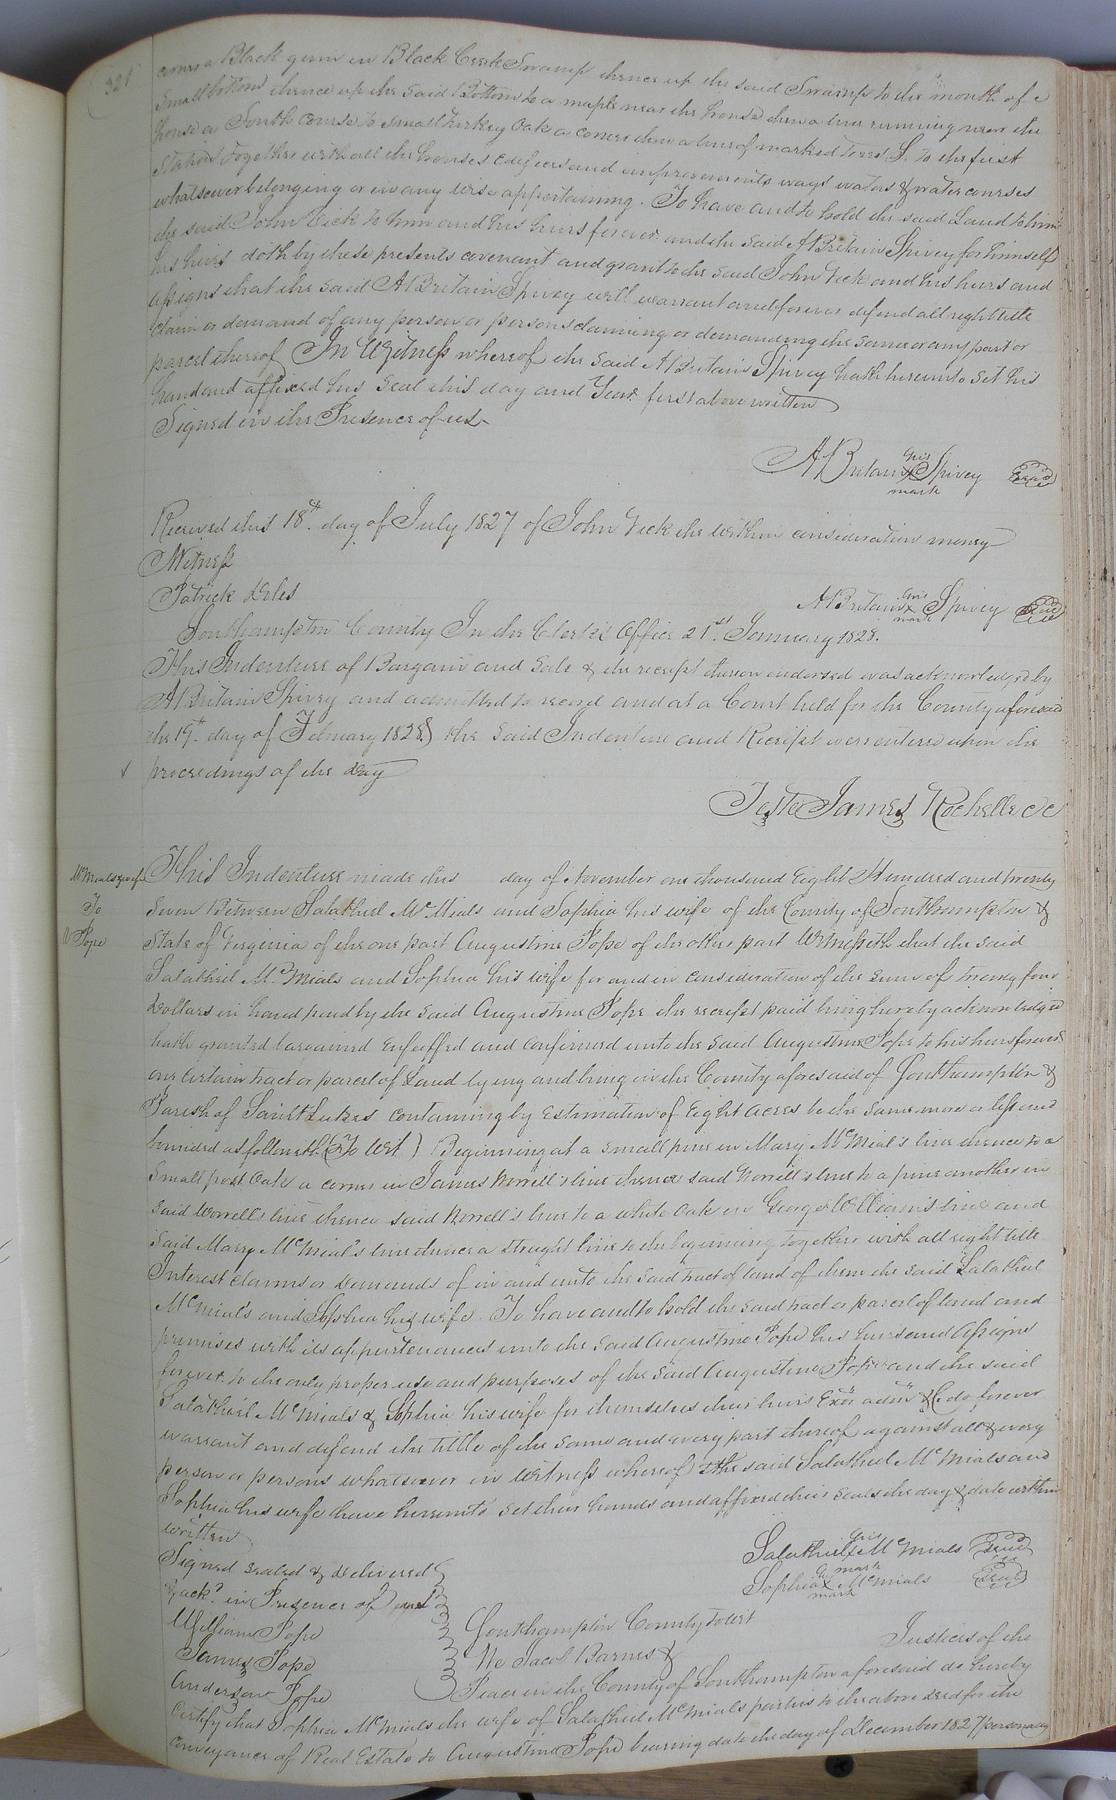 321
corner a Black gum in Black Creek Swamp thence up the said Swamp to the mouth of a
small bottom thence up the said Bottom to a maple near the house then a line running near the
house a South course to small turkey Oak a corner then a line of marked trees S. to the first
Station Together with all the houses edifices and improvements ways waters & water courses
whatsoever belonging or in any wise appertaining. To have and to hold the said Land to him
the said John Vick to him and his heirs forever and the said A Britain Spivey for himself
his heirs doth by these presents covenant and grant to the said John Vick and his heirs and
assigns that the said A Britain Spivey will warrant and forever defend all right title
claim or demand of any person or persons claiming or demanding the same or any part or
parcel thereof In Witness whereof the said A Britain Spivey hath hereunto set his
hand and affixed his Seal this day and Year first above written
Signed in the Presence of us
A Britain his x mark Spivey Seal
Received this 18th day of July 1827 of John Vick the within consideration money
Witness
Patrick Liles
A Britain his x mark Spivey Seal
Southampton County In the Clerk's Office 21st January 1828.
This Indenture of Bargain and Sale & the receipt thereon endorsed was acknowledged by
A Britain Spivey and admitted to record and at a Court held for the County aforesaid
the 19th day of February 1828 the said Indenture and Receipt were entered upon the
proceedings of the day
Teste James Rochelle CC
McMials & wife
To
Pope
This Indenture made this day of November one thousand Eight Hundred and twenty
Seven Between Salathiel McMials and Sophia his wife of the County of Southampton &
State of Virginia of the one part Augustine Pope of the other part Witnesseth that the said
Salathiel McMials and Sophia his wife for and in consideration of the sum of twenty four
Dollars in hand paid by the said Augustine Pope the receipt paid being hereby acknowledged
hath granted bargained Enfeoffed and confirmed unto the said Augustine Pope to his heirs forever
one certain tract or parcel of Land lying and being in the County aforesaid of Southampton &
Parish of Saint Lukes containing by Estimation of Eight acres be the same more or less and
bounded as followeth (To Wit) Beginning at a small pine in Mary McMial's line thence to a
small post Oak a corner in James Worrell's line thence said Worrell's line to a pine another in
said Worrell's line thence said Worrell's line to a white Oak in George Williams's line and
said Mary McMial's line thence a straight line to the beginning together with all right title
Interest claims or demands of in and unto the said tract of land of them the said Salathiel
McMials and Sophia his wife. To have and to hold the said tract or parcel of land and
premises with its appurtenances unto the said Augustine Pope his heirs and Assigns
forever to the only proper use and purposes of the said Augustine Pope and the said
Salathiel McMials & Sophia his wife for themselves their heirs Exors admrs &c do forever
warrant and defend the title of the same and every part thereof against all & every
person or persons whatsoever in Witness whereof the said Salathiel McMials and
Sophia his wife have hereunto set their hands and affixed their seals the day & date within
written
Signed sealed & delivered
& ackd in Presence of us
William Pope
James Pope
Anderson Pope
Salathiel his x mark McMials Seal
Sophia her x mark McMials Seal
Southampton County to wit
We Jacob Barnes & Justices of the
Peace in the County of Southampton aforesaid do hereby
Certify that Sophia McMials the wife of Salathiel McMials parties to the above deed for the
conveyance of Real Estate to Augustine Pope bearing date the day of December 1827 personally